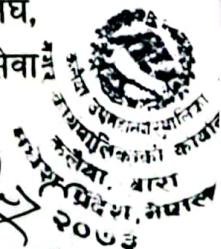 घ,
सेवा
कलैया उपमहानगरपालिका
नगर कार्यपालिकाको कार्यालय
कलैया, बारा
मधेश प्रदेश, नेपाल
२०७३